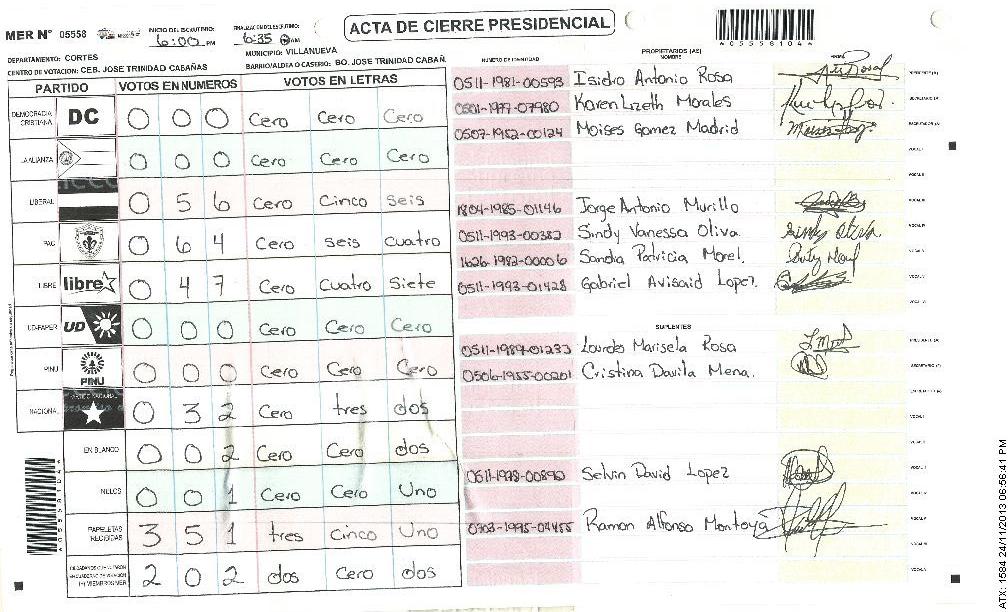 ACTA DE CIERRE PRESIDENCIAL
MER N° 05558
INICIO DEL ESCRUTINIO: 6:00 PM
FINALIZACION DEL ESCRUTINIO: 6:35
A055581044
DEPARTAMENTO: CORTES
MUNICIPIO: VILLANUEVA
CENTRO DE VOTACION: CEB. JOSE TRINIDAD CABAÑAS
BARRIO/ALDEA O CASERIO: BO. JOSE TRINIDAD CABAÑ.
PARTIDO VOTOS EN NUMEROS VOTOS EN LETRAS
DEMOCRACIA CRISTIANA DC 0 0 0 Cero Cero Cero
LA ALIANZA 0 0 0 Cero Cero Cero
LIBERAL 0 5 6 Cero Cinco Seis
PAC 0 6 4 Cero seis cuatro
LIBRE libre 0 4 7 Cero Cuatro Siete
UD-FAPER UD 0 0 0 Cero Cero Cero
PINU PINU 0 0 0 Cero Cero Cero
NACIONAL 0 3 2 Cero tres dos
EN BLANCO 0 0 2 Cero Cero dos
NULOS 0 0 1 Cero Cero Uno
PAPELETAS RECIBIDAS 3 5 1 tres Cinco Uno
CIUDADANOS QUE VOTARON 2 0 2 dos Cero dos
NUMERO DE IDENTIDAD PROPIETARIOS (AS) NOMBRE FIRMA
0511-1981-00593 Isidro Antonio Rosa
0501-1977-07980 Karen Lizeth Morales
0507-1982-00124 Moises Gomez Madrid
1804-1985-01146 Jorge Antonio Murillo
0511-1993-00382 Sindy Vanessa Oliva
1626-1982-00006 Sandia Patricia Morel.
0511-1993-01428 Gabriel Avisaid Lopez.
SUPLENTES
0511-1989-01233 Lourdes Marisela Rosa
0506-1955-00201 Cristina Davila Mena.
0511-1978-00890 Selvin David Lopez
0703-1995-04455 Ramon Alfonso Montoya
A055581044
ATX: 1584 24/11/2013 06:56:41 PM